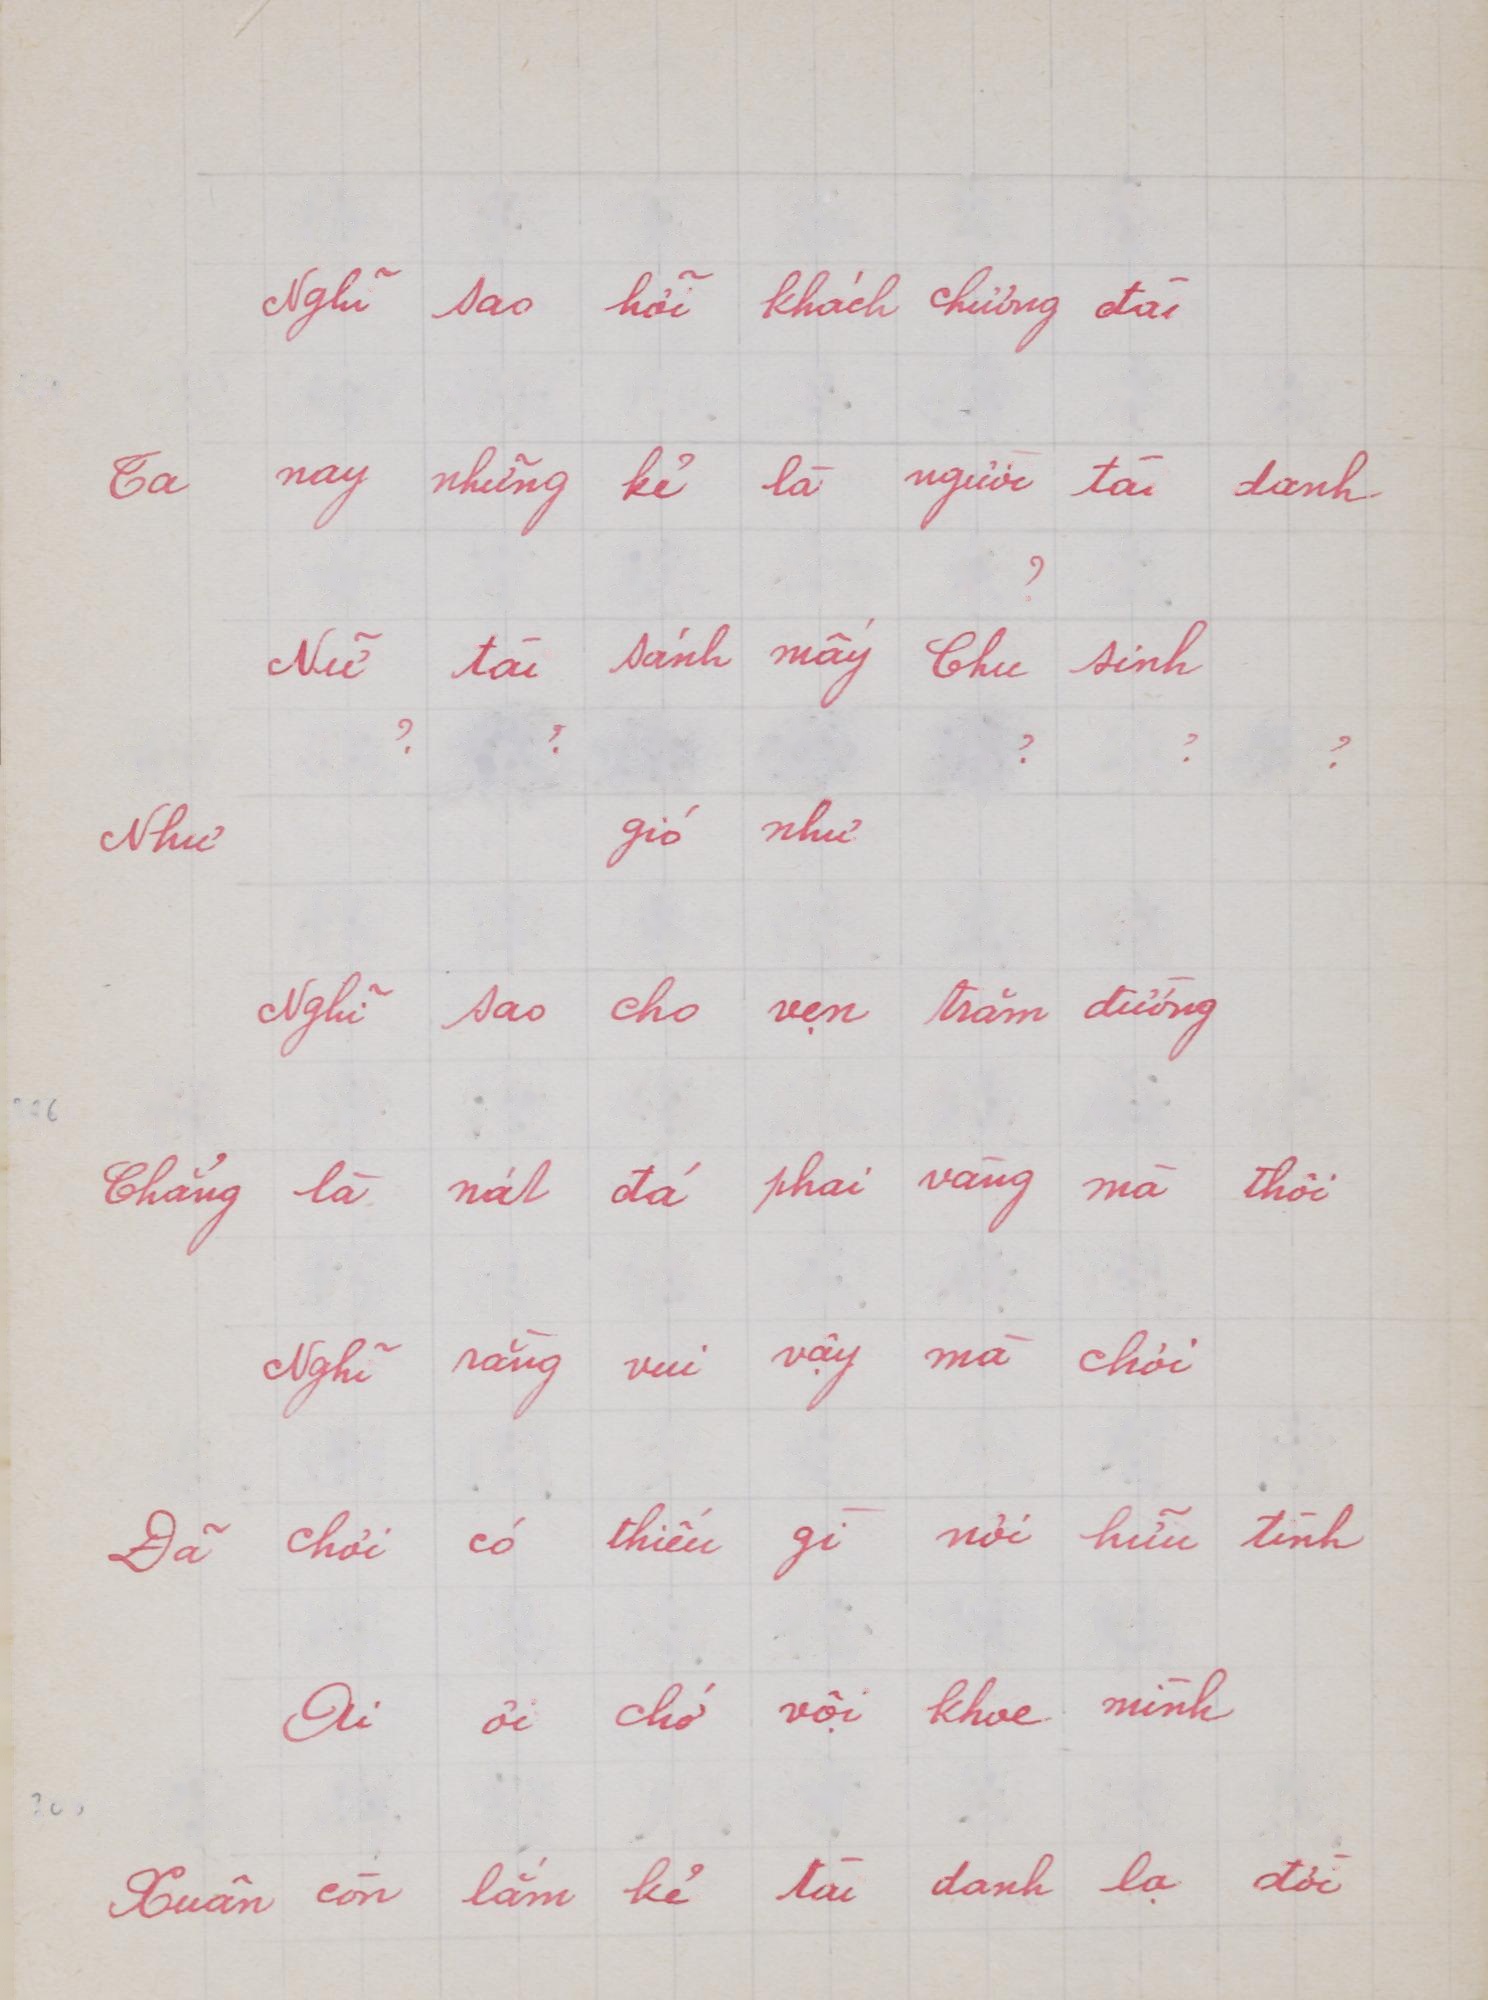 Nghĩ sao hỡi khách chương đài
Ta nay những kẻ là người tài danh
?
Nữ tài sánh mấy Chu sinh
? ? ? ? ?
Như gió như
Nghĩ sao cho vẹn trăm đường
Chẳng là nát đá phai vàng mà thôi
Nghĩ rằng vui vậy mà chơi
Đã chơi có thiếu gì nơi hữu tình
Ai ơi chớ vội khoe mình
Xuân còn lắm kẻ tài danh lạ đời